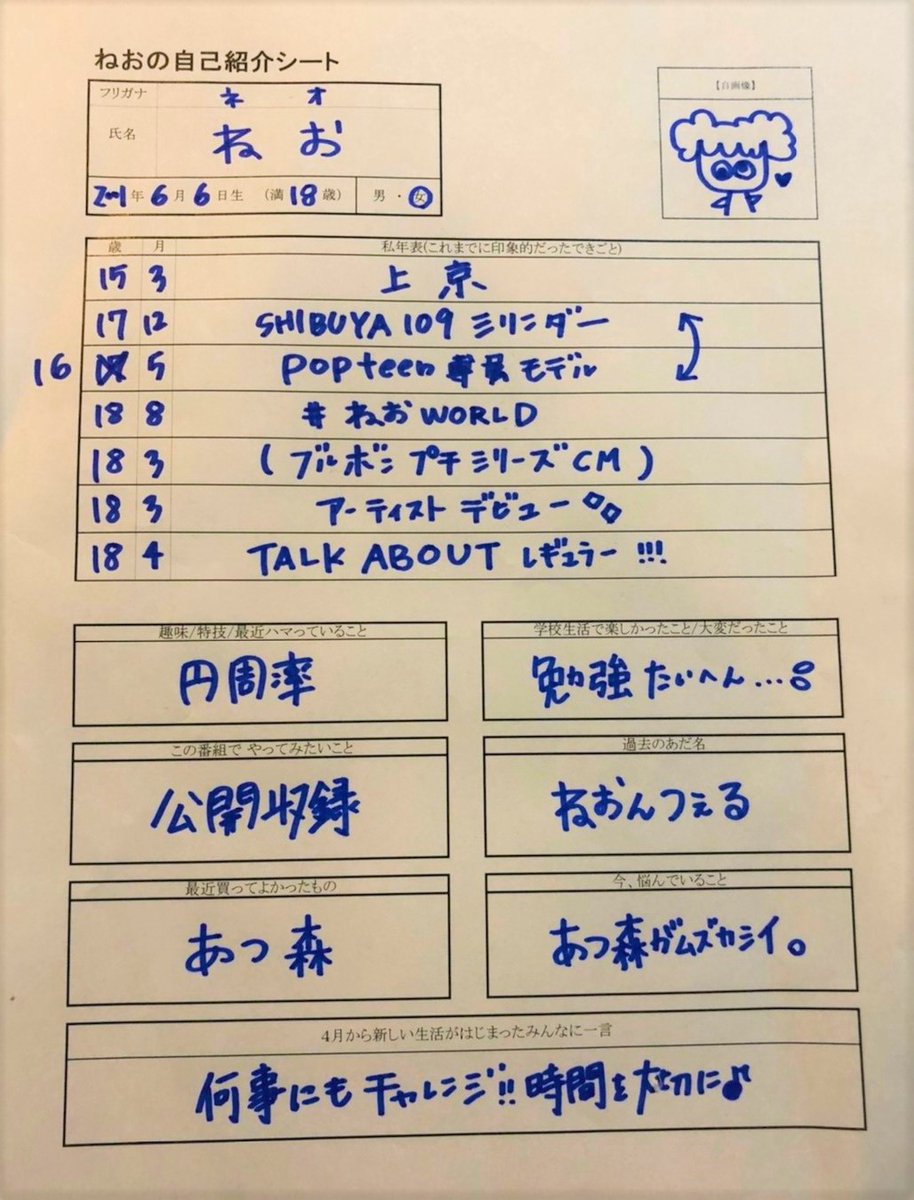 ねおの自己紹介シート
【自画像】
フリガナ ネ オ
氏名 ね お
2001年6月6日生 (満18歳) 男・女
歳 月 私年表(これまでに印象的だったできごと)
15 3 上京
17 12 SHIBUYA109 ミリンダー
16 5 popteen 専属モデル
18 8 # ねおWORLD
18 3 (ブルボン プチシリーズCM)
18 3 アーティストデビュー
18 4 TALK ABOUT レギュラー!!!
趣味/特技/最近ハマっていること
円周率
学校生活で楽しかったこと/大変だったこと
勉強たいへん...
この番組で やってみたいこと
公開収録
過去のあだ名
ねおんつぇる
最近買ってよかったもの
あつ森
今、悩んでいること
あつ森がムズカシイ。
4月から新しい生活がはじまったみんなに一言
何事にもチャレンジ!!時間を大切に♪